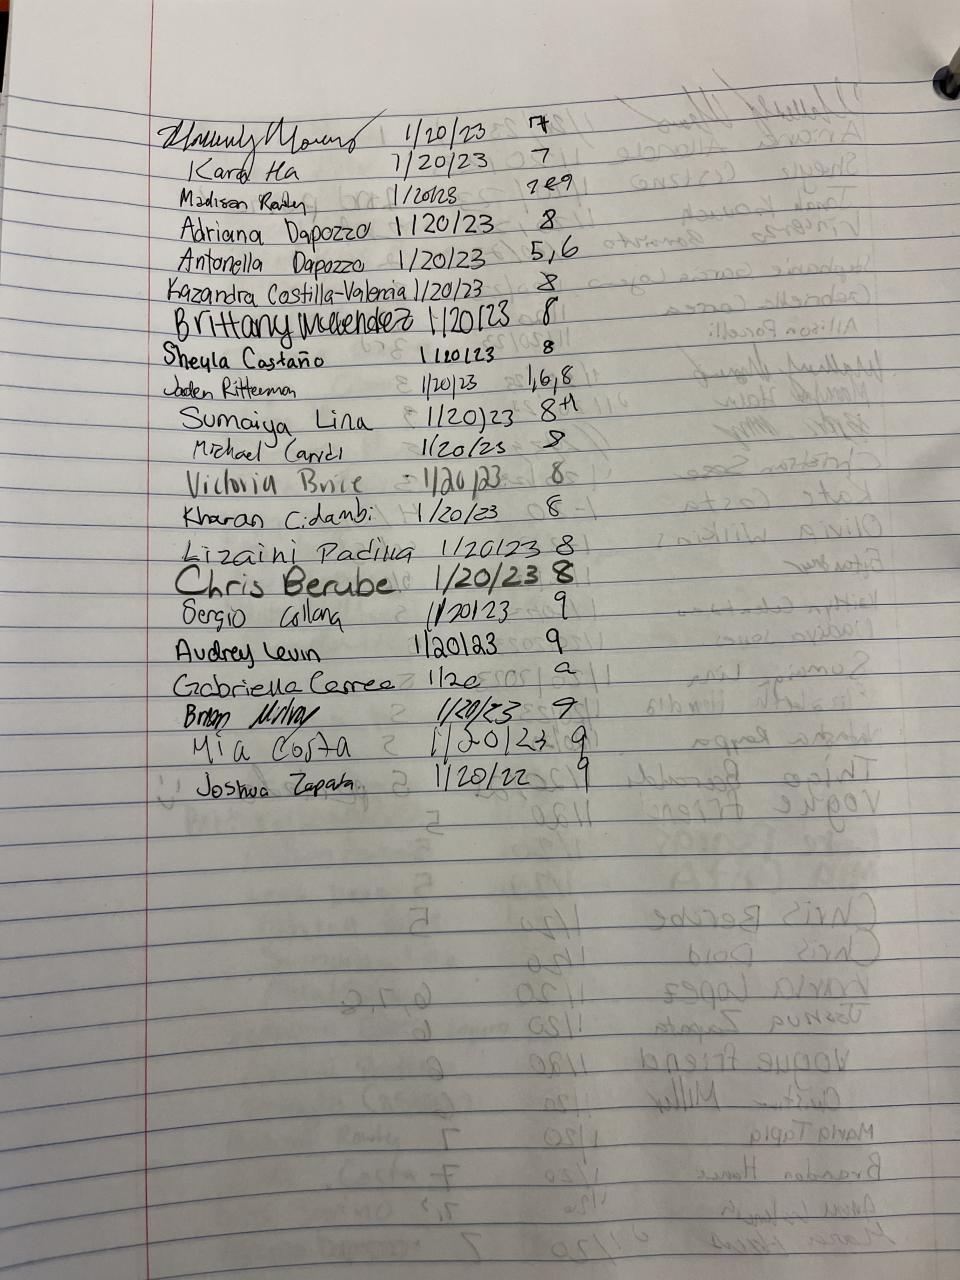 Moreno 1/20/23 7
Karol Ha 1/20/23 7
Madison 1/20/23 7&9
Adriana Dapozzo 1/20/23 8
Antonella Dapozzo 1/20/23 5,6
Kazandra Costilla-Valencia 1/20/23 8
Brittany Melendez 1/20/23 8
Sheyla Castaño 1/20/23 8
Jaden Ritterman 1/20/23 1,6,8
Sumaiya Lina 1/20/23 8th
Michael Cardi 1/20/23 8
Victoria Brice 1/20/23 8
Kharan Cidambi 1/20/23 8
Lizaini Padilla 1/20/23 8
Chris Berube 1/20/23 8
Sergio Collona 1/20/23 9
Audrey Levin 1/20/23 9
Gabriella Correa 1/20 9
Brian 1/20/23 9
Mia Costa 1/20/23 9
Joshua Zapata 1/20/22 9